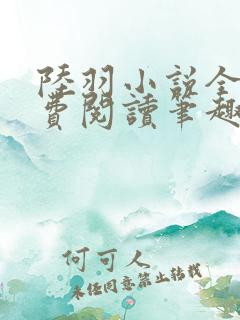 陸羽小說全
費閱讀筆趣
何可人
未经同意禁止转载